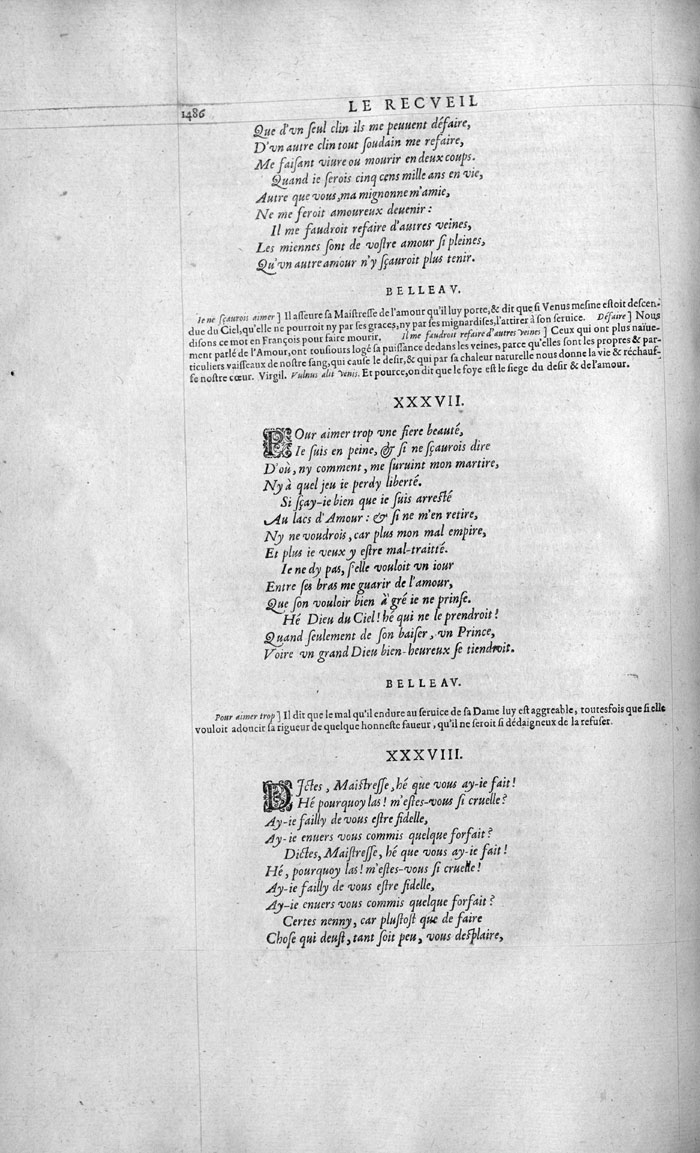 1486
LE RECVEIL
Que d'vn ſeul clin ils me peuuent défaire,
D'vn autre clin tout ſoudain me refaire,
Me faiſant viure ou mourir en deux coups.
Quand ie ſerois cinq cens mille ans en vie,
Autre que vous, ma mignonne m'amie,
Ne me feroit amoureux deuenir :
Il me faudroit refaire d'autres veines,
Les miennes ſont de voſtre amour ſi pleines,
Qu'vn autre amour n'y ſçauroit plus tenir.
BELLEAV.
Ie ne ſçaurois aimer ] Il aſſeure ſa Maiſtreſſe de l'amour qu'il luy porte, & dit que ſi Venus meſme eſtoit deſcen-
due du Ciel, qu'elle ne pourroit ny par ſes graces, ny par ſes mignardiſes, l'attirer à ſon ſeruice. Défaire ] Nous
diſons ce mot en François pour faire mourir. Il me faudroit refaire d'autres veines ] Ceux qui ont plus naïue-
ment parlé de l'Amour, ont touſiours logé ſa puiſſance dedans les veines, parce qu'elles ſont les propres & par-
ticuliers vaiſſeaux de noſtre ſang, qui cauſe le deſir, & qui par ſa chaleur naturelle nous donne la vie & réchauf-
fe noſtre cœur. Virgil. Vulnus alit venis. Et pource, on dit que le foye eſt le ſiege du deſir & de l'amour.
XXXVII.
POur aimer trop vne fiere beauté,
Ie ſuis en peine, & ſi ne ſçaurois dire
D'où, ny comment, me ſuruint mon martire,
Ny à quel jeu ie perdy liberté.
Si ſçay-ie bien que ie ſuis arreſté
Au lacs d'Amour : & ſi ne m'en retire,
Ny ne voudrois, car plus mon mal empire,
Et plus ie veux y eſtre mal-traitté.
Ie ne dy pas, s'elle vouloit vn iour
Entre ſes bras me guarir de l'amour,
Que ſon vouloir bien à gré ie ne prinſe.
Hé Dieu du Ciel ! hé qui ne le prendroit !
Quand ſeulement de ſon baiſer, vn Prince,
Voire vn grand Dieu bien-heureux ſe tiendroit.
BELLEAV.
Pour aimer trop ] Il dit que le mal qu'il endure au ſeruice de ſa Dame luy eſt aggreable, toutesfois que ſi elle
vouloit adoucir ſa rigueur de quelque honneſte faueur, qu'il ne ſeroit ſi dédaigneux de la refuſer.
XXXVIII.
DIctes, Maiſtreſſe, hé que vous ay-ie fait !
Hé pourquoy las ! m'eſtes-vous ſi cruelle ?
Ay-ie failly de vous eſtre fidelle,
Ay-ie enuers vous commis quelque forfait ?
Dictes, Maiſtreſſe, hé que vous ay-ie fait !
Hé, pourquoy las ! m'eſtes-vous ſi cruelle !
Ay-ie failly de vous eſtre fidelle,
Ay-ie enuers vous commis quelque forfait ?
Certes nenny, car pluſtoſt que de faire
Choſe qui deuſt, tant ſoit peu, vous deſplaire,